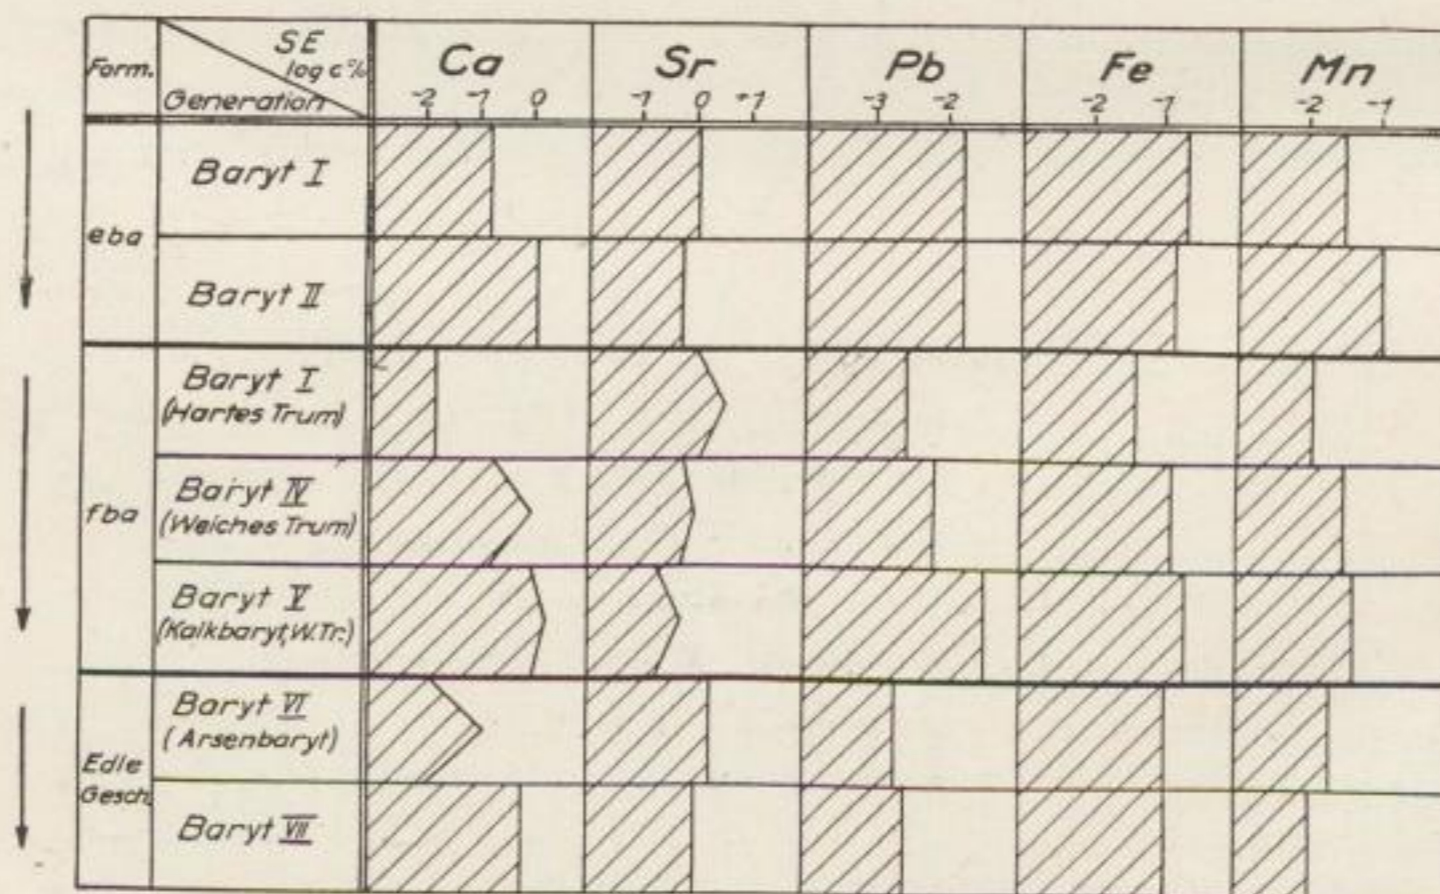 Form.
SE
log c%
Generation
Ca
-2 -1 0
Sr
-1 0 +1
Pb
-3 -2
Fe
-2 -1
Mn
-2 -1
eba
Baryt I
Baryt II
fba
Baryt I
(Hartes Trum)
Baryt IV
(Weiches Trum)
Baryt V
(Kalkbaryt, W.Tr.)
Edle
Gesch.
Baryt VI
(Arsenbaryt)
Baryt VII